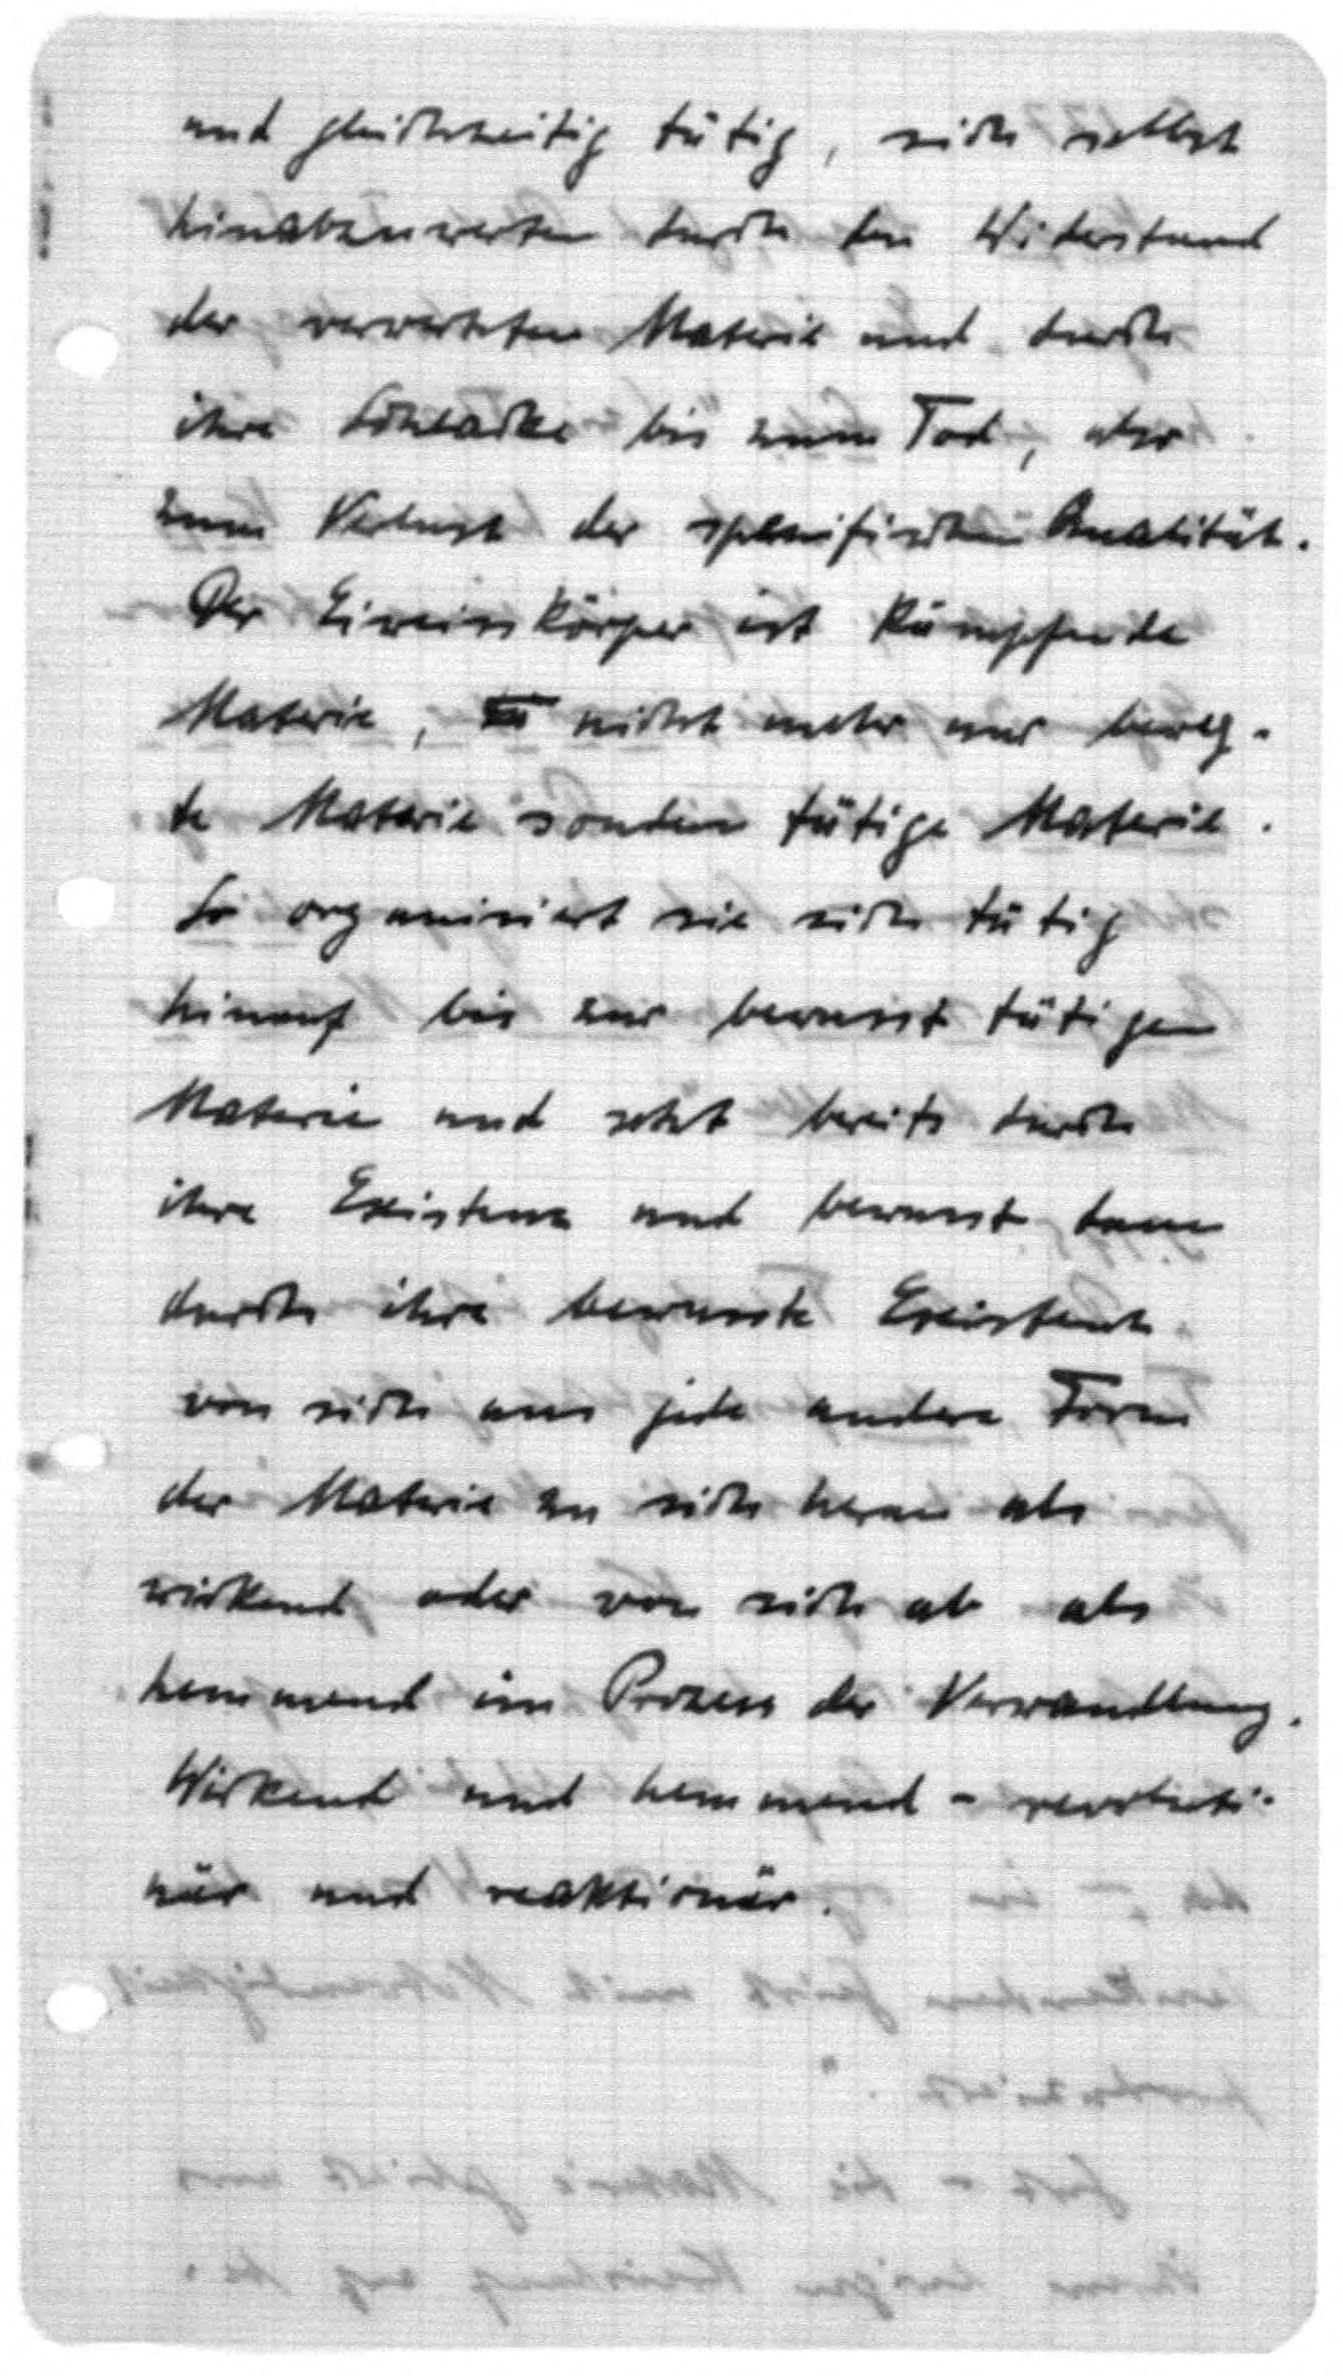 und gleichzeitig tätig, sich selbst
hinabzuwerten durch den Widerstand
der verwerteten Materie und durch
ihre Schlacke bis zum Tod, also
zum Verlust der spezifischen Qualität.
Der Eiweisskörper ist kämpfende
Materie, nicht mehr nur beweg-
te Materie sondern tätige Materie.
So organisiert sie sich tätig
hinauf bis zur bewusst tätigen
Materie und setzt bereits durch
ihre Existenz und bewusst dann
durch ihre bewusste Existenz
von sich aus jede andere Form
der Materie zu sich heran als
wirkend oder von sich ab als
hemmend im Prozess der Verwandlung.
Wirkend und hemmend - revolutio-
när und reaktionär.